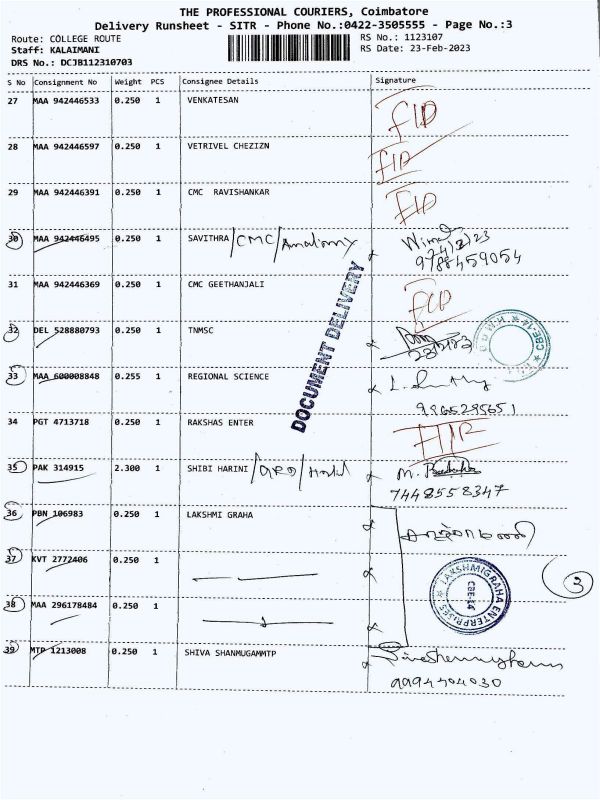 THE PROFESSIONAL COURIERS, Coimbatore
Delivery Runsheet - SITR - Phone No.:0422-3505555 - Page No.:3
Route: COLLEGE ROUTE RS No.: 1123107
Staff: KALAIMANI RS Date: 23-Feb-2023
DRS No.: DCJB112310703
S No Consignment No Weight PCS Consignee Details Signature
27 MAA 942446533 0.250 1 VENKATESAN
28 MAA 942446597 0.250 1 VETRIVEL CHEZIZN
29 MAA 942446391 0.250 1 CMC RAVISHANKAR
30 MAA 942446495 0.250 1 SAVITHRA /CMC/Anatomy
9788459054
31 MAA 942446369 0.250 1 CMC GEETHANJALI
32 DEL 528880793 0.250 1 TNMSC
DOCUMENT DELIVERY
33 MAA 600008848 0.255 1 REGIONAL SCIENCE
34 PGT 4713718 0.250 1 RAKSHAS ENTER
35 PAK 314915 2.300 1 SHIBI HARINI
7448558347
36 PBN 106983 0.250 1 LAKSHMI GRAHA
37 KVT 2772406 0.250 1
LAKSHMIGRAHA ENTERPRISES
CBE-14
3
38 MAA 296178484 0.250 1
39 MTP 1213008 0.250 1 SHIVA SHANMUGAMMTP
9994404030